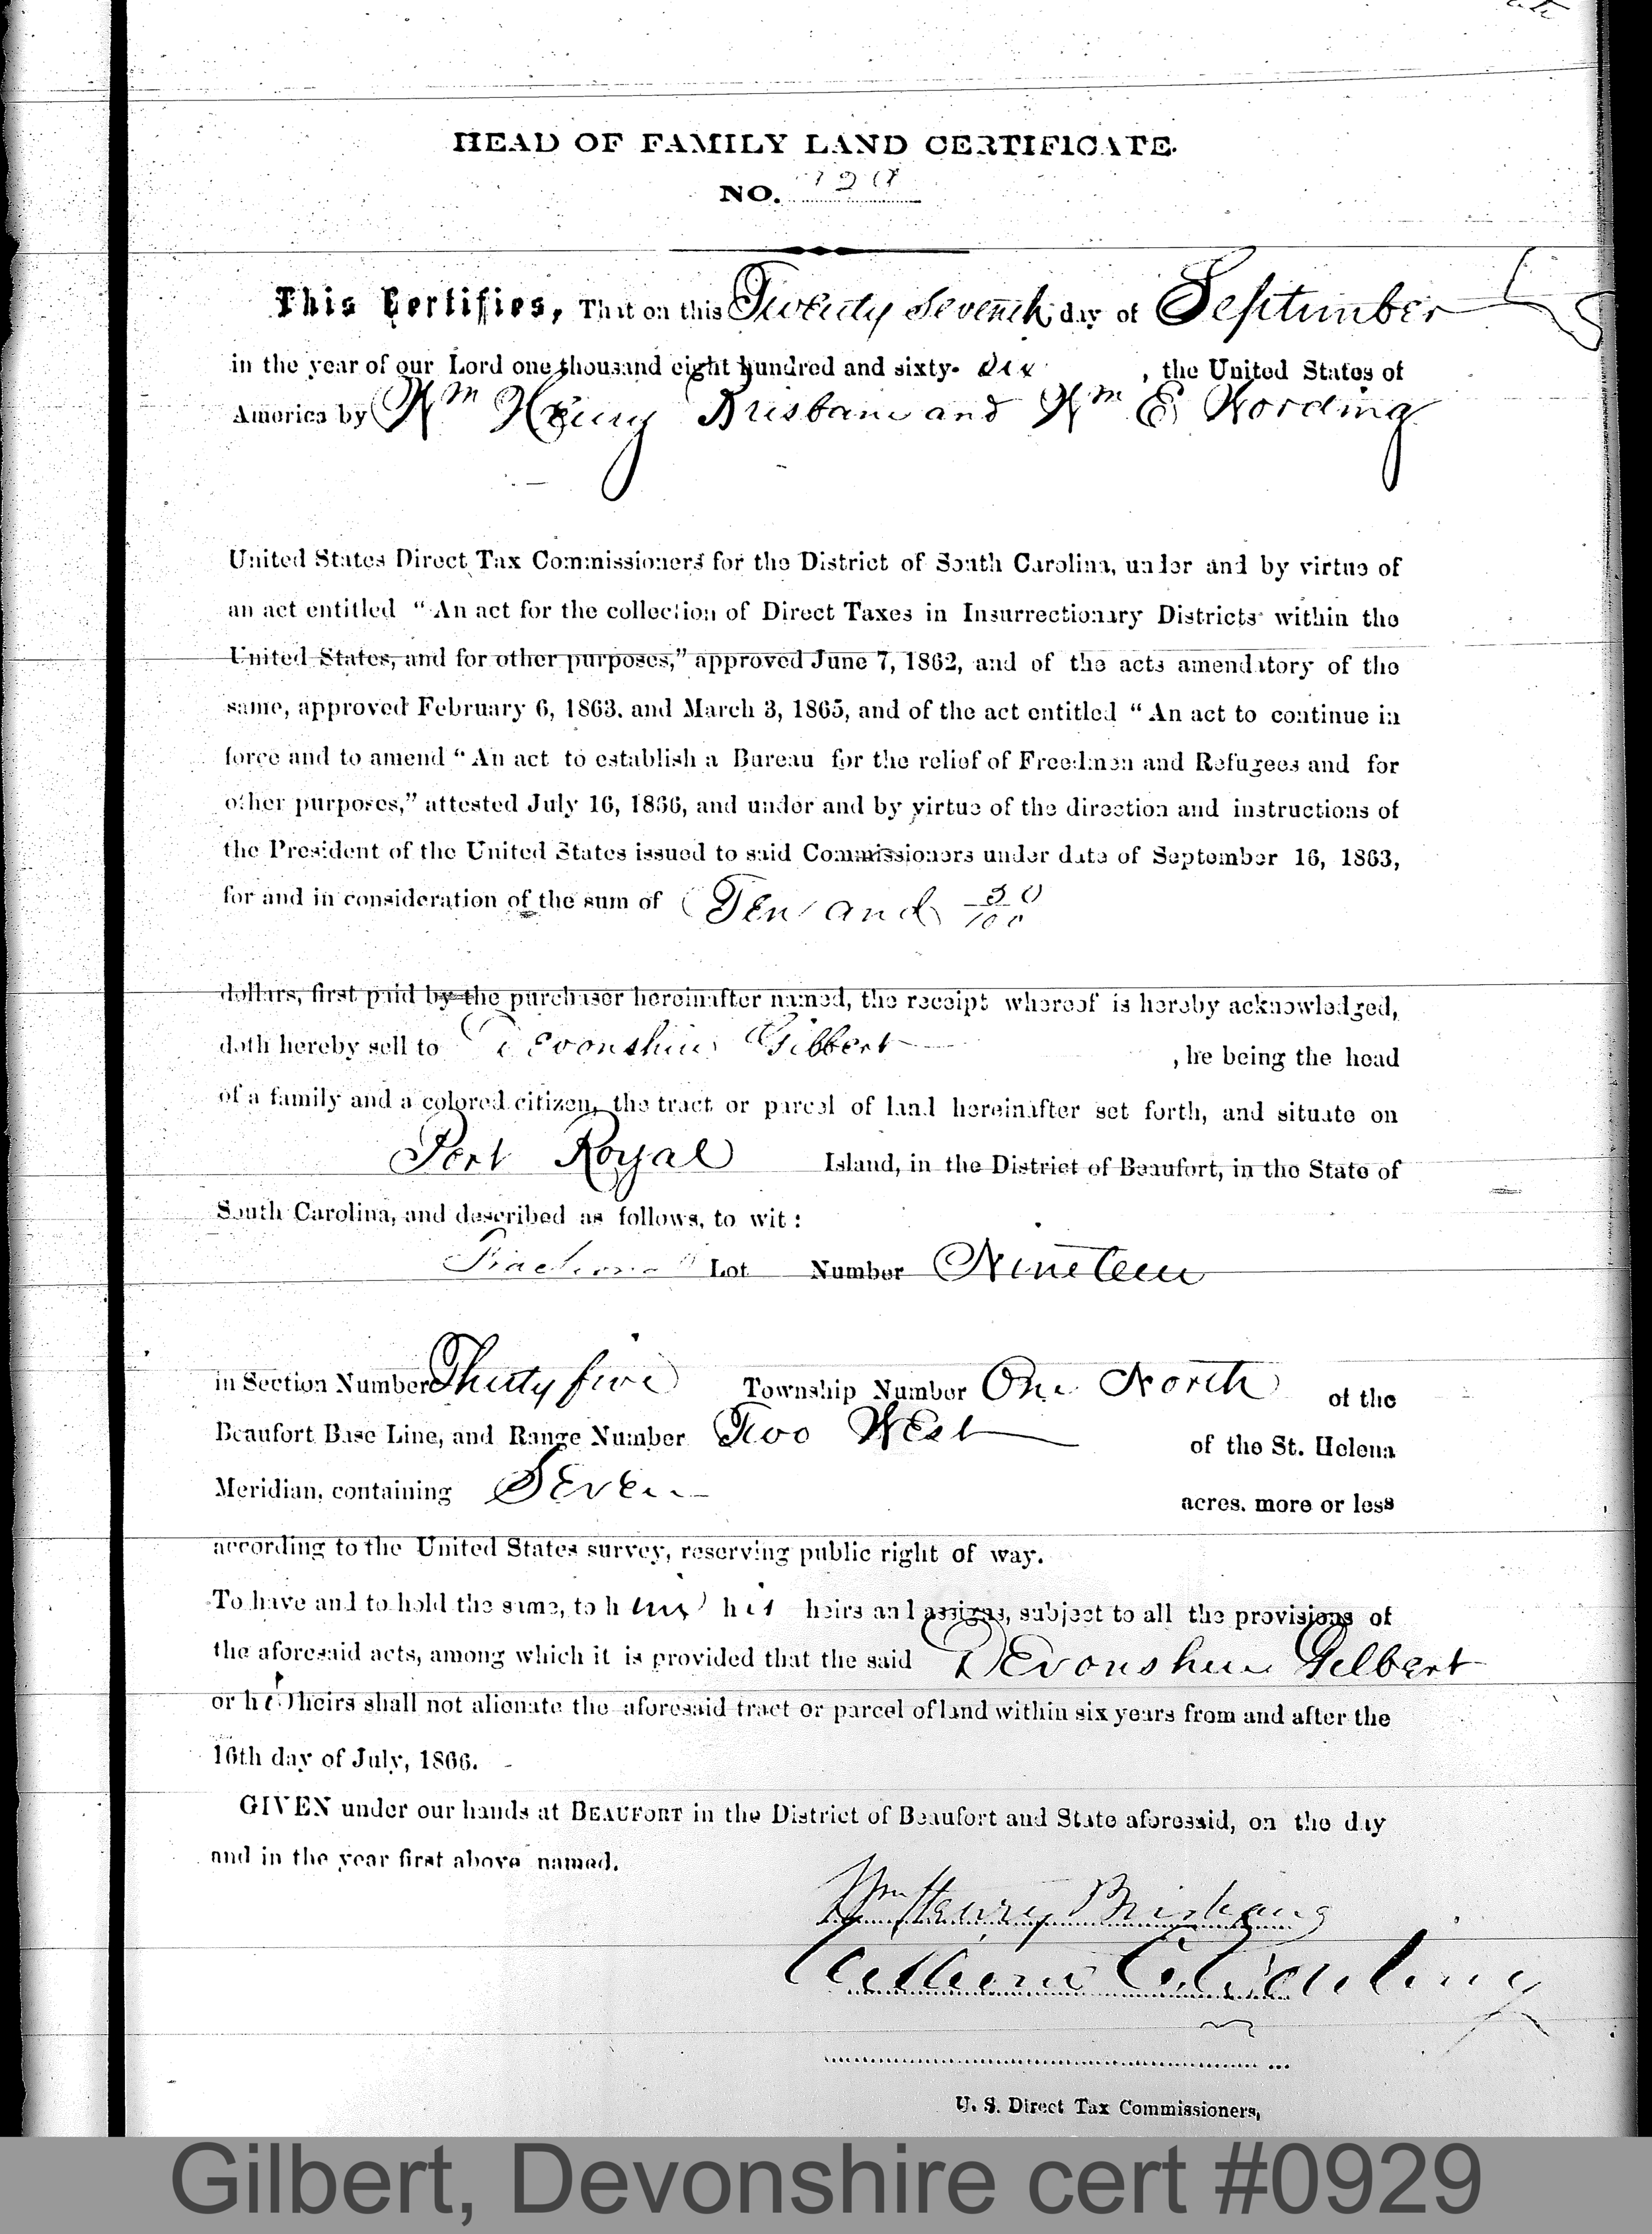 HEAD OF FAMILY LAND CERTIFICATE.
NO.
This Certifies, That on this Twenty Seventh day of September
in the year of our Lord one thousand eight hundred and sixty- six , the United States of
America by Wm Henry Brisbane and Wm E Wording
United States Direct Tax Commissioners for the District of South Carolina, under and by virtue of
an act entitled “An act for the collection of Direct Taxes in Insurrectionary Districts within the
United States, and for other purposes,” approved June 7, 1862, and of the acts amendatory of the
same, approved February 6, 1863. and March 3, 1865, and of the act entitled “An act to continue in
force and to amend “An act to establish a Bureau for the relief of Freedmen and Refugees and for
other purposes,” attested July 16, 1866, and under and by virtue of the direction and instructions of
the President of the United States issued to said Commissioners under date of September 16, 1863,
for and in consideration of the sum of Ten and 50/100
dollars, first paid by the purchaser hereinafter named, the receipt whereof is hereby acknowledged,
doth hereby sell to Devonshire Gibbert , he being the head
of a family and a colored citizen, the tract or parcel of land hereinafter set forth, and situate on
Port Royal Island, in the District of Beaufort, in the State of
South Carolina, and described as follows, to wit:
Fractional Lot Number Nineteen
in Section Number Thirty five Township Number One North of the
Beaufort Base Line, and Range Number Two West of the St. Helena
Meridian, containing Seven acres. more or less
according to the United States survey, reserving public right of way.
To have and to hold the same, to him his heirs and assigns, subject to all the provisions of
the aforesaid acts, among which it is provided that the said Devonshire Gilbert
or his heirs shall not alienate the aforesaid tract or parcel of land within six years from and after the
16th day of July, 1866.
GIVEN under our hands at BEAUFORT in the District of Beaufort and State aforesaid, on the day
and in the year first above named.
Wm Henry Brisbane
U. S. Direct Tax Commissioners,
Gilbert, Devonshire cert #0929